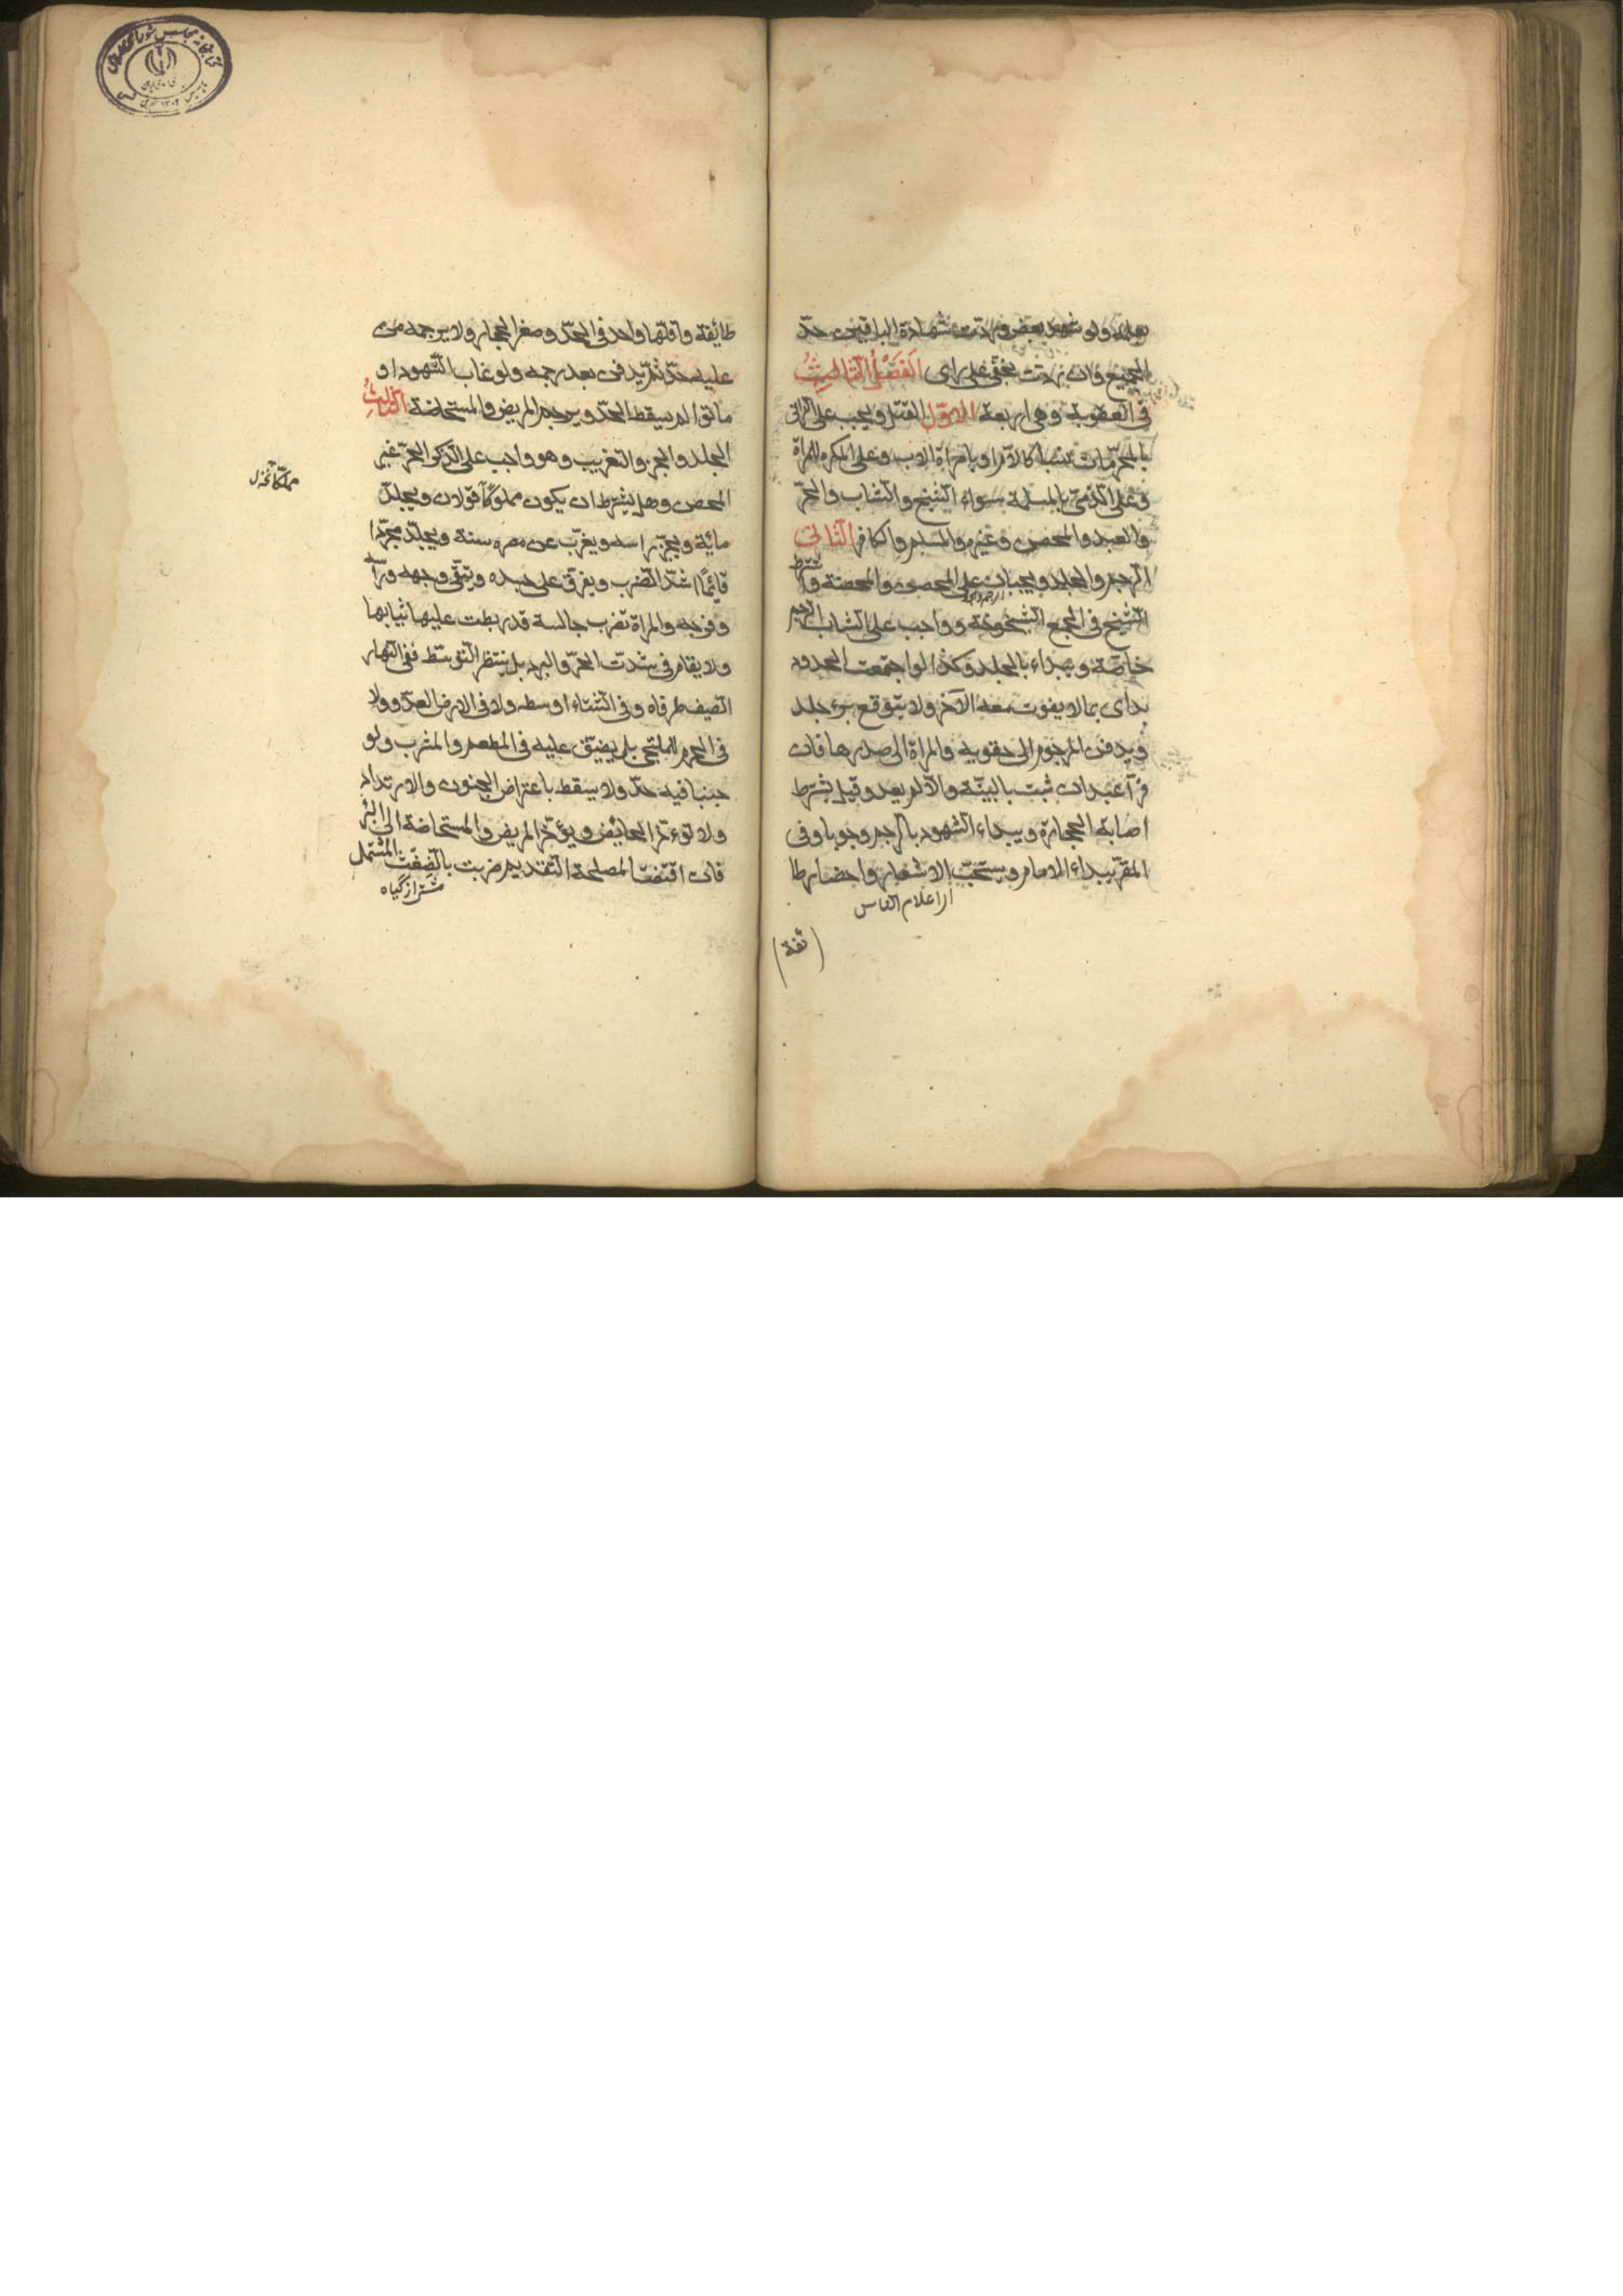 بعلمه ولو شهد بعض وردت شهادة الباقين حدّ
الجميع وان ردت بخفى على راى الفَصْلُ الثّالِثُ
فى العقوبة وهى اربعة الاوّل القتل ويجب على الزانى
بالمحرّمات نسبا كالامّ او بامراة الاب وعلى المكره للمراة
وعلى الذمّى بالمسلمة سواء الشيخ والشاب والحرّ
والعبد والمحصن وغيره والمسلم والكافر الثانى
الرجم والجلد ويجبان على المحصن والمحصنة وشرط
الشيخ فى الجمع الشيخوخة وواجب على الشاب الرجم
خاصّة ويبداء بالجلد وكذا لو اجتمعت الحدود
بداى بما لا يفوت معه الآخر ولا يتوقع برء جلد
ويدفن المرجوم الى حقويه والمراة الى صدرها فان
فرّ اعيد ان ثبت بالبيّنة والّا لم يعد وقيل يشترط
اصابة الحجارة ويبداء الشهود بالرجم وجوبا وفى
المقرّ يبداء الامام ويستحبّ الاشعار واحضار طا
اى اعلام الناس
(ئفة)
طائفة واقلها واحد فى الحدّ وصغر الحجار ولا يرجمه من
عليه حدّ ثمّ يدفن بعد رجمه ولو غاب الشهود او
ماتوا لم يسقط الحدّ ويرجم المريض والمستحاضة الثالث
الجلد والجز والتغريب وهو واجب على الذكر الحرّ غير
المحصن وهل يشترط ان يكون مملوكًا قولان ويجلد
مائة ويجزّ راسه ويغرّب عن مصره سنة ويجلد مجرّدا
قائمًا اشدّ الضرب ويفرق على جسده ويتّقى وجهه وراسه
وفرجه والمراة تضرب جالسة قد ربطت عليها ثيابها
ولا يقام فى شدّت الحرّ والبرد بل ينتظر التوسّط ففى النهار
الصيف طرفاه وفى الشتاء اوسطه ولا فى الارض العدّو ولا
فى الحرم للملتجى بل يضيّق عليه فى المطعم والمشرب ولو
جنبا فيه حدّ ولا يسقط باعتراض الجنون والارتداد
ولا تؤخّر الحائض ويؤخّر المريض والمستحاضة الى البرء
فان اقتضت المصلحة التقديم ضربت بالضغث المشتمل